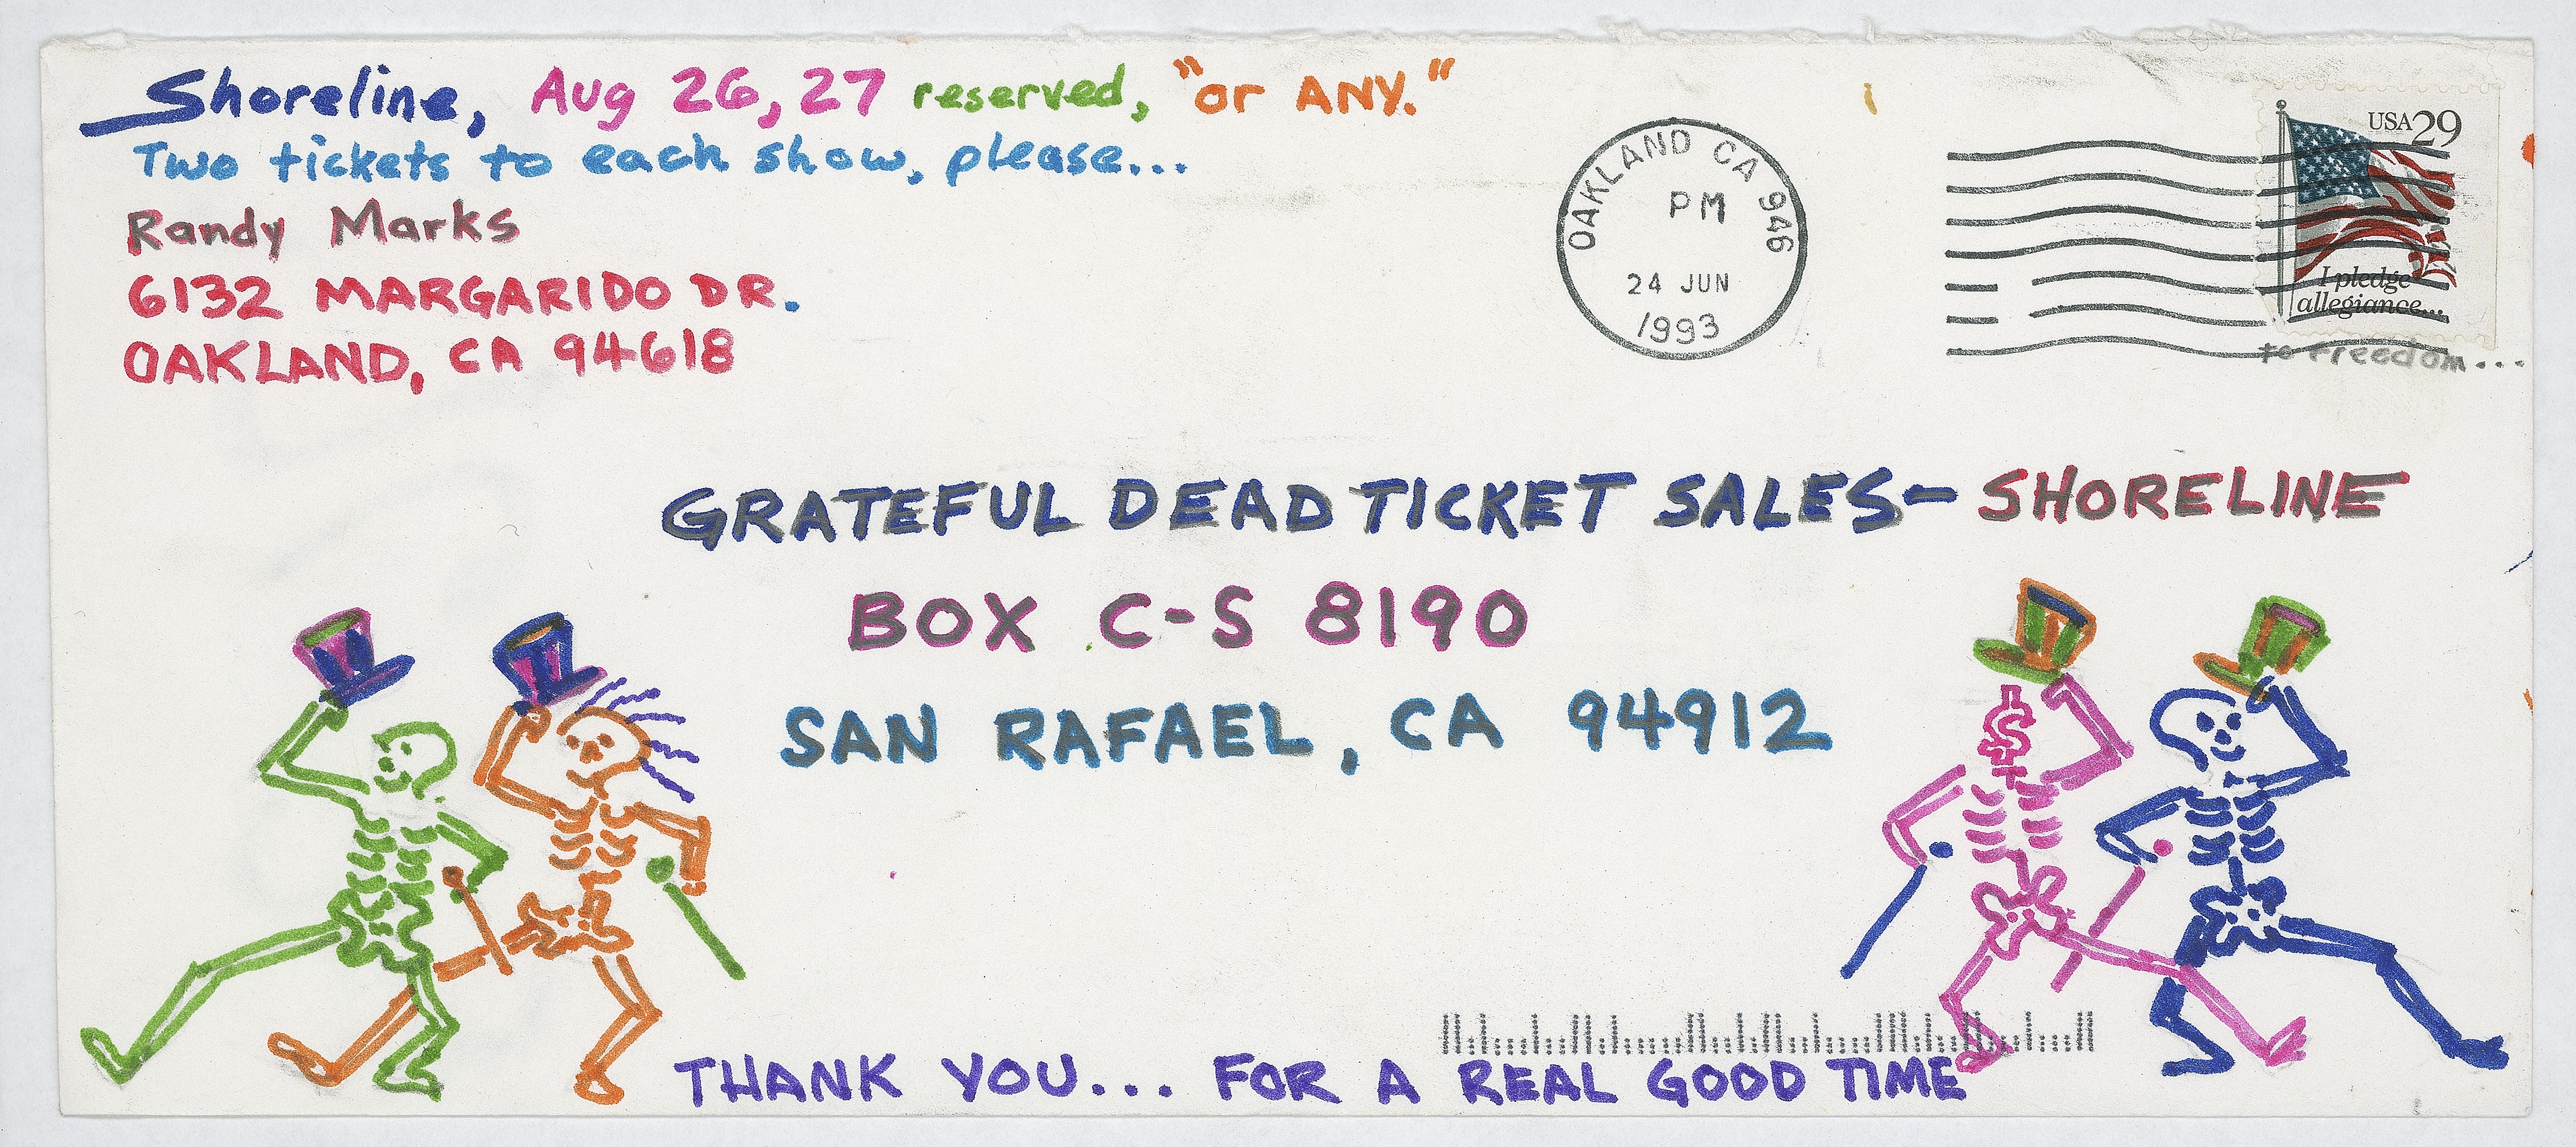 Shoreline, Aug 26, 27 reserved, "or ANY."
Two tickets to each show, please...
Randy Marks
6132 MARGARIDO DR.
OAKLAND, CA 94618
OAKLAND CA 946
PM
24 JUN
1993
USA 29
I pledge
allegiance...
to freedom...
GRATEFUL DEAD TICKET SALES- SHORELINE
BOX C-S 8190
SAN RAFAEL, CA 94912
$
THANK YOU... FOR A REAL GOOD TIME